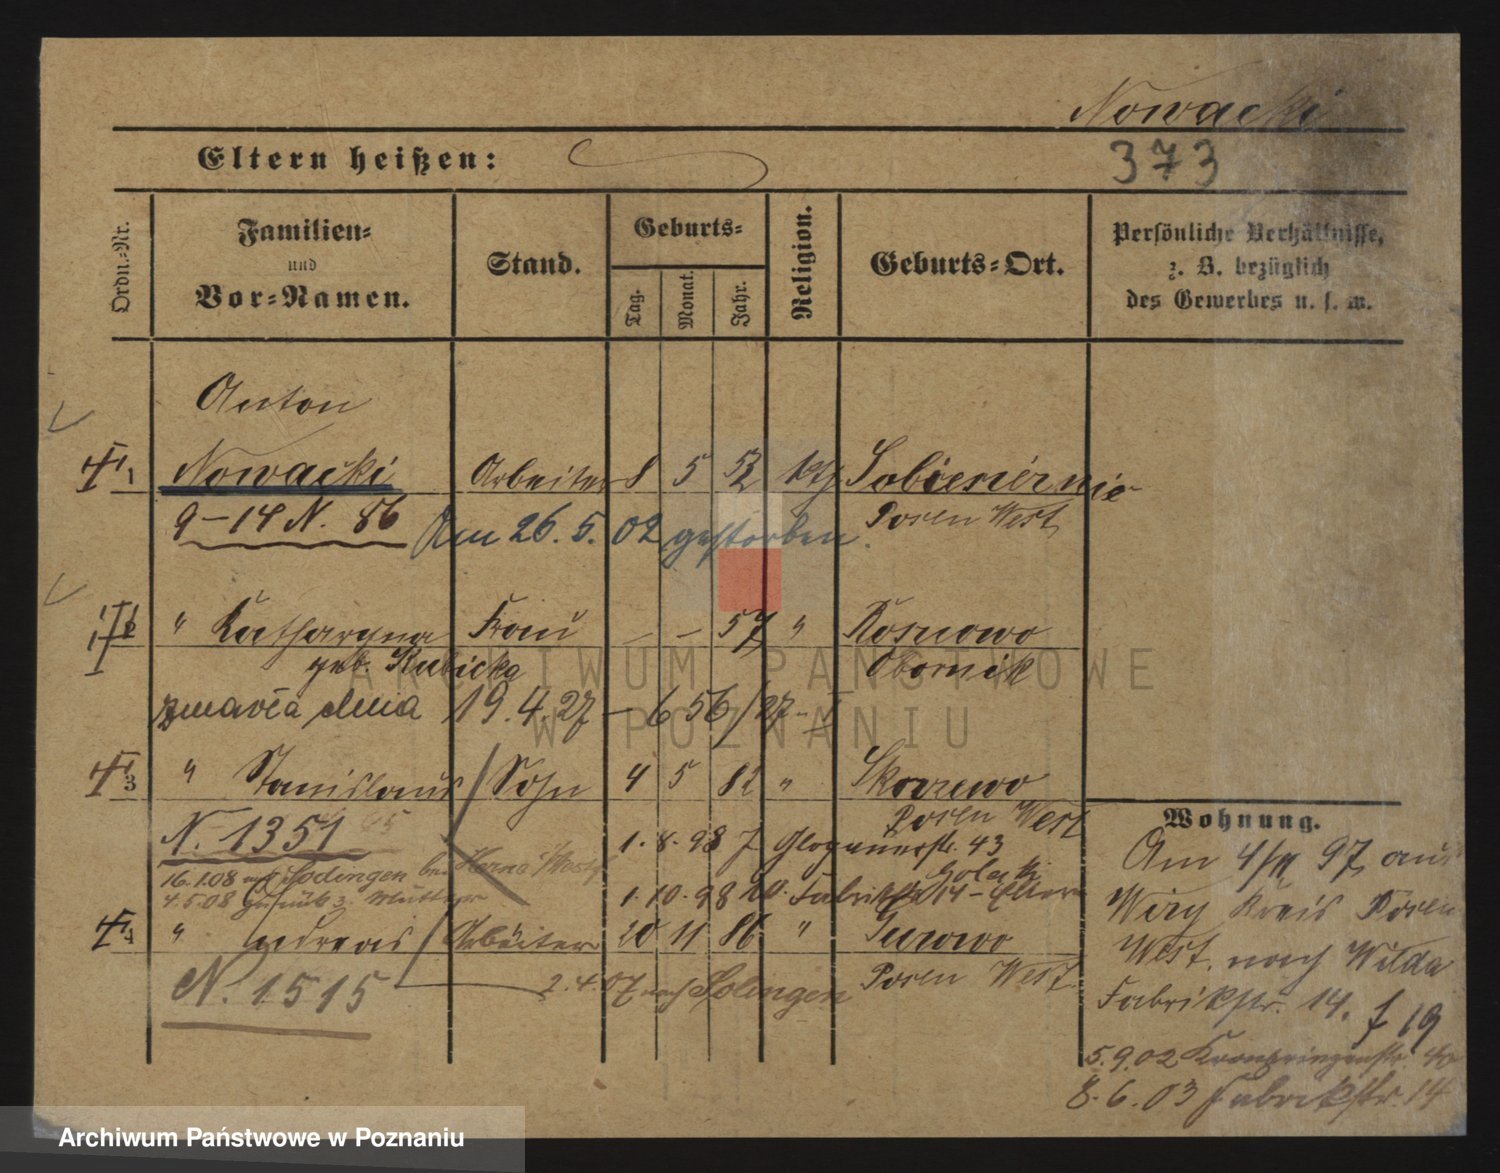 Nowacki
Eltern heißen:
373
Ordn.-Nr.
Familien-
und
Vor-Namen.
Stand.
Geburts-
Tag.
Monat.
Jahr.
Religion.
Geburts-Ort.
Persönliche Verhältnisse,
z. B. bezüglich
des Gewerbes u. s. w.
Anton
1 Nowacki Arbeiter 8 5 52 kth Sobiesiernie
9-14 N. 86 Am 26.5.02 gestorben. Posen West
2 " Katharyna Frau - - 57 " Rosnowo
geb. Kubicka Obornik
zmarła dnia 19.4.27 - 656/27
3 " Stanislaus Sohn 4 5 82 " Skorzewo
Posen West
N. 1351 1.8.98 Glogauerstr. 43
16.1.08 Sodingen bei Herne Westf
1.10.98 Fabrikstr 14 - Eltern
4.5.08 zurück z. Mutter
4 " Andreas Arbeiter 20 11 86 " Gurowo
Posen West.
N. 1515 2.4.07 nach Solingen
Wohnung.
Am 4/4 97 aus
Wiry Kreis Posen
West. nach Wilda
Fabrikstr. 14. f 19
5.9.02 Kronprinzenstr.
8.6.03 Fabrikstr. 14
ARCHIWUM PAŃSTWOWE
W POZNANIU
Archiwum Państwowe w Poznaniu